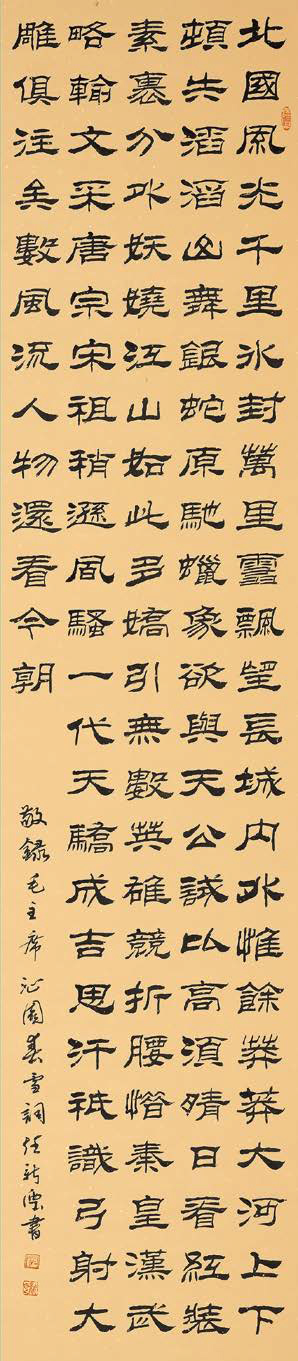 北國風光千里冰封萬里雪飄望長城内外惟餘莽莽大河上下
頓失滔滔山舞銀蛇原馳蠟象欲與天公試比高須晴日看紅裝
素裹分外妖嬈江山如此多嬌引無數英雄競折腰惜秦皇漢武
略輸文采唐宗宋祖稍遜風騷一代天驕成吉思汗祇識弓射大
雕俱往矣數風流人物還看今朝
敬録毛主席沁園春雪詞任新書